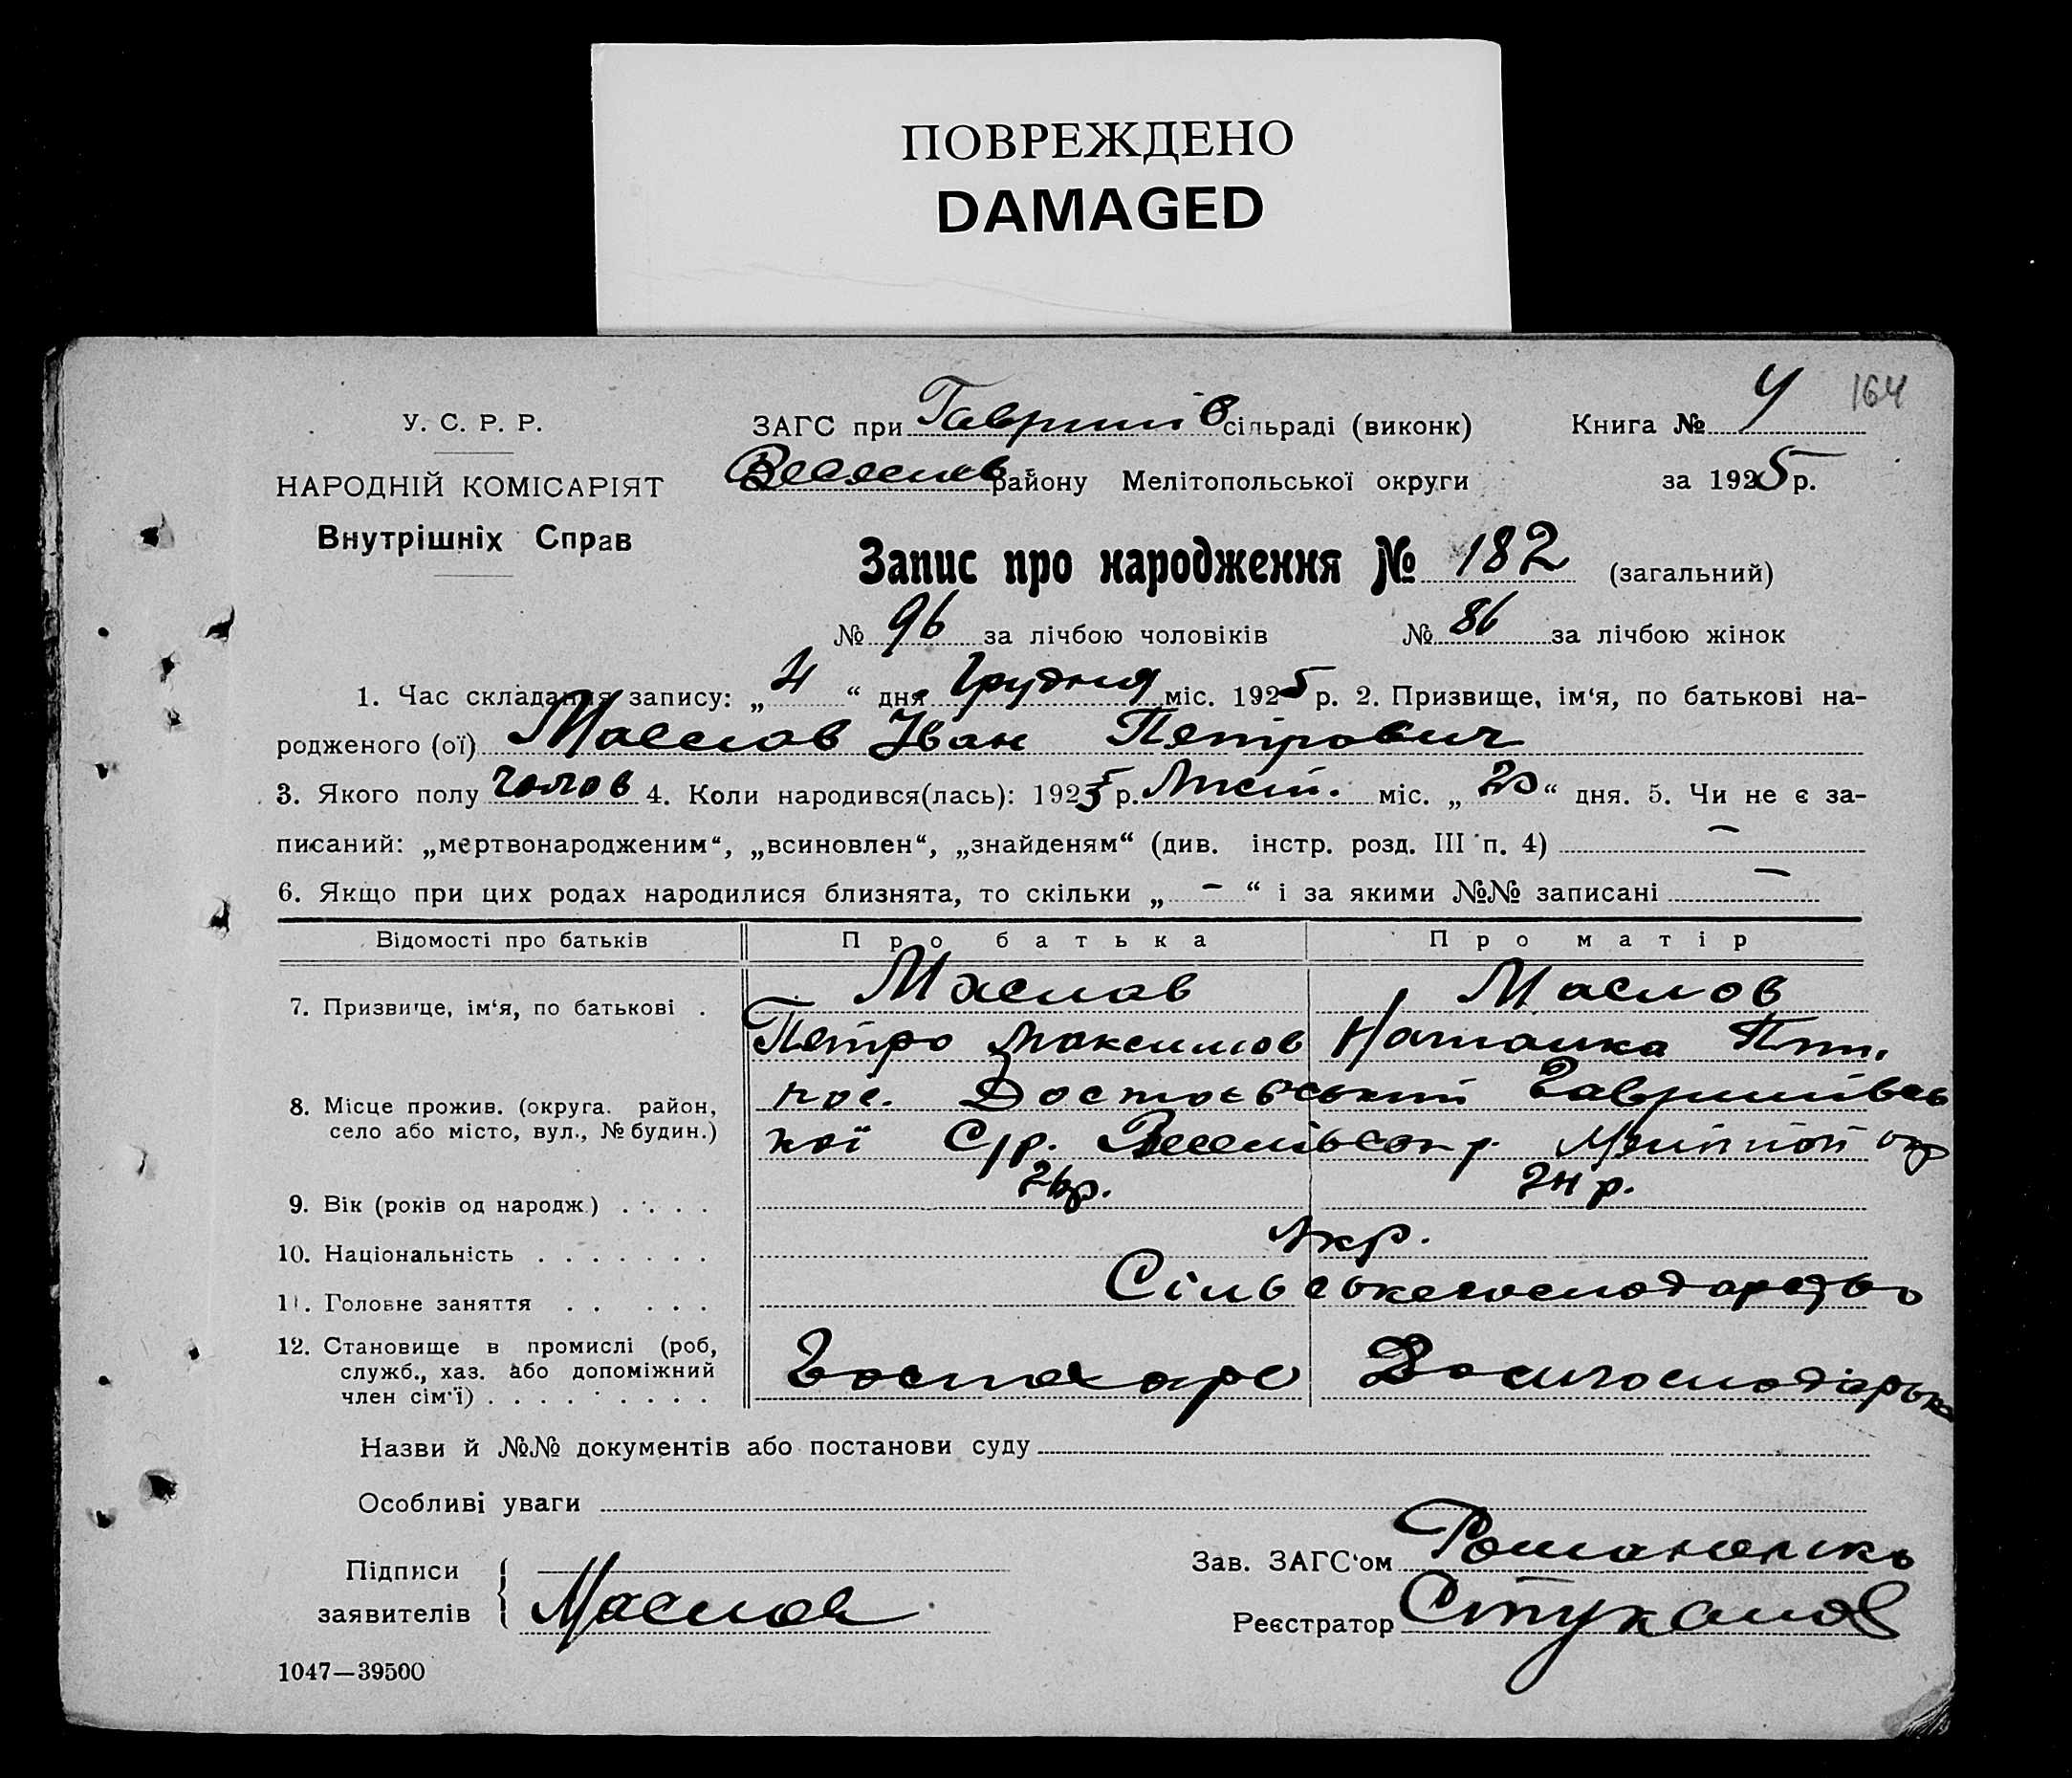 ПОВРЕЖДЕНО
DAMAGED
У. С. Р. Р.
НАРОДНІЙ КОМІСАРІЯТ
Внутрішніх Справ
ЗАГС при Гаврилів сільраді (виконк)
району Мелітопольської округи
Книга № 4
164
за 1925 р.
Запис про народження № 182 (загальний)
№ 96 за лічбою чоловіків № 86 за лічбою жінок
1. Час складання запису: „ 4 “ дня Грудня міс. 1925 р. 2. Призвище, ім‘я, по батькові на-
родженого (ої) Маслов Іван Петрович
3. Якого полу чолов 4. Коли народився(лась): 1925 р. Лист. міс. „ 20 “ дня. 5. Чи не є за-
писаний: „мертвонародженим“, „всиновлен“, „знайденям“ (див. інстр. розд. III п. 4) —
6. Якщо при цих родах народилися близнята, то скільки „ – “ і за якими №№ записані —
Відомості про батьків Про батька Про матір
7. Призвище, ім‘я, по батькові . Маслов Маслов
Петро Максимов Наталка
8. Місце прожив. (округа. район,
село або місто, вул., № будин.)
пос. Достоєвський Гаврилівсь
кої С/р. окр
9. Вік (років од народж.) . . . . 26р. 24 р.
10. Національність . . . . . . . Укр.
11. Головне заняття . . . . . Сільське господарство
12. Становище в промислі (роб,
служб., хаз. або допоміжний
член сім‘ї) . . . . . . . . .
Господарь Домгосподарька
Назви й №№ документів або постанови суду
Особливі уваги
Підписи
заявителів
Маслов
Зав. ЗАГС‘ом Романенко
Реєстратор Стукалов
1047—39500